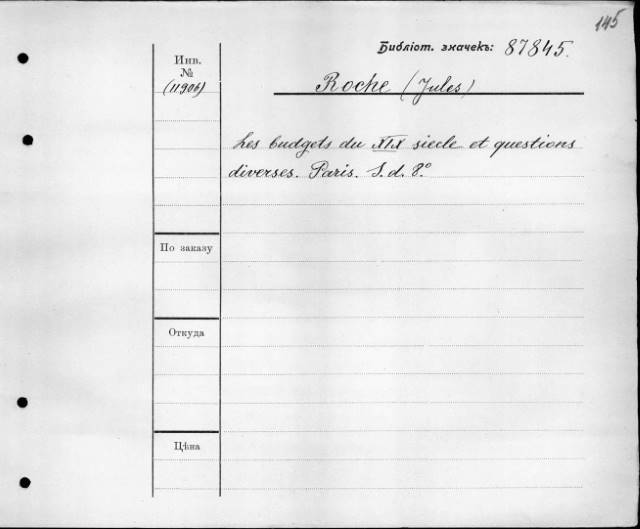 145
Библіот. значекъ: 87845.
Инв.
№
(11906)
Roche (Jules)
Les budgets du XIX siecle et questions
diverses. Paris. S. d. 8°.
По заказу
Откуда
Цѣна